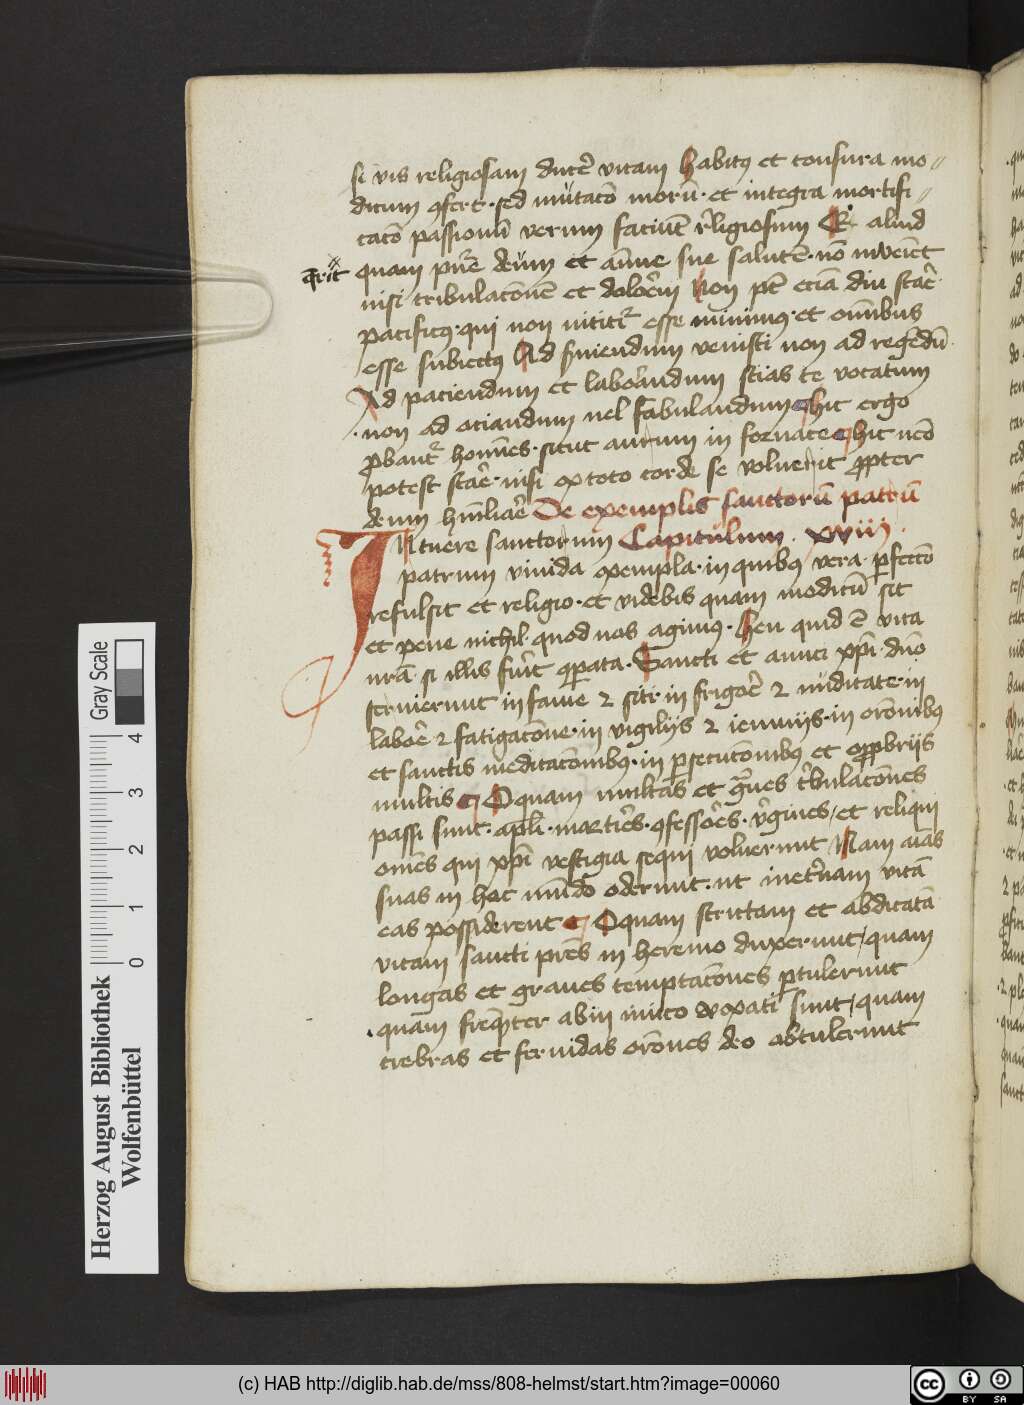 si vis religiosam ducē vitam habitꝫ et tonsura mo⸗
dicum ꝯfert · sed mutacō morū · et integra mortifi⸗
cacō passionū verum faciūt religiosum Qꝛ aliud
q̄rit
quam purē deum et anime sue salutē · nō inveiēt
nisi tribulacōnē et dolorem Non pt̄ eciā diu starē
pacificꝫ · qui non nititr̄ esse minimꝫ · et omībus
esse subiectus Ad s̄uiendum venisti non ad regēdū
Ad paciendum et laborandum scias te vocatum
· non ad ociandum uel fabulandum hic ergo
ꝓbantr̄ homīes · sicut aurum in fornace hic nēo
potest starē · nisi ex toto corde se voluerit ꝓpter
deum hūiliarē De exemplis sanctorū patrū
INtuere sanctorum Capitulum · xviii ·
patrum viuida exempla · in quibꝫ vera ꝑfectō
refulsit et religio · et videbis quam modicū sit
et pene nichil · quod nos agimꝫ · heu quid ē vita
nrā · si illis fuīt ꝯpata · Sancti et amici xp̄i · dn̄o
seruierunt in fame ⁊ siti · in frigorē ⁊ nuditate · in
laborē ⁊ fatigacōne · in vigiliis ⁊ ieiuniis · in orōnibꝫ
et sanctis meditacōnibꝫ · in ꝑsecucōnibꝫ et opprobriis
multis O quam multas et graues tribulacōnes
passi sunt · apl̄i · martires · ꝯfessores · virgines / et reliqui
omēs qui xp̄i vestigia sequi voluerunt Nam aīas
suas in hoc mūdo oderunt · ut in eternam vitā
eas possiderent O quam strictam et abdicatā
vitam sancti prēs in heremo duxerunt / quam
longas et graues temptacōnes ꝑtulerunt
· quam freq̄nter ab inimico vexati sunt / quam
crebras et feruidas orōnes deo obtulerunt
Herzog August Bibliothek
Wolfenbüttel
0 1 2 3 4
Gray Scale
(c) HAB http://diglib.hab.de/mss/808-helmst/start.htm?image=00060
cc BY SA